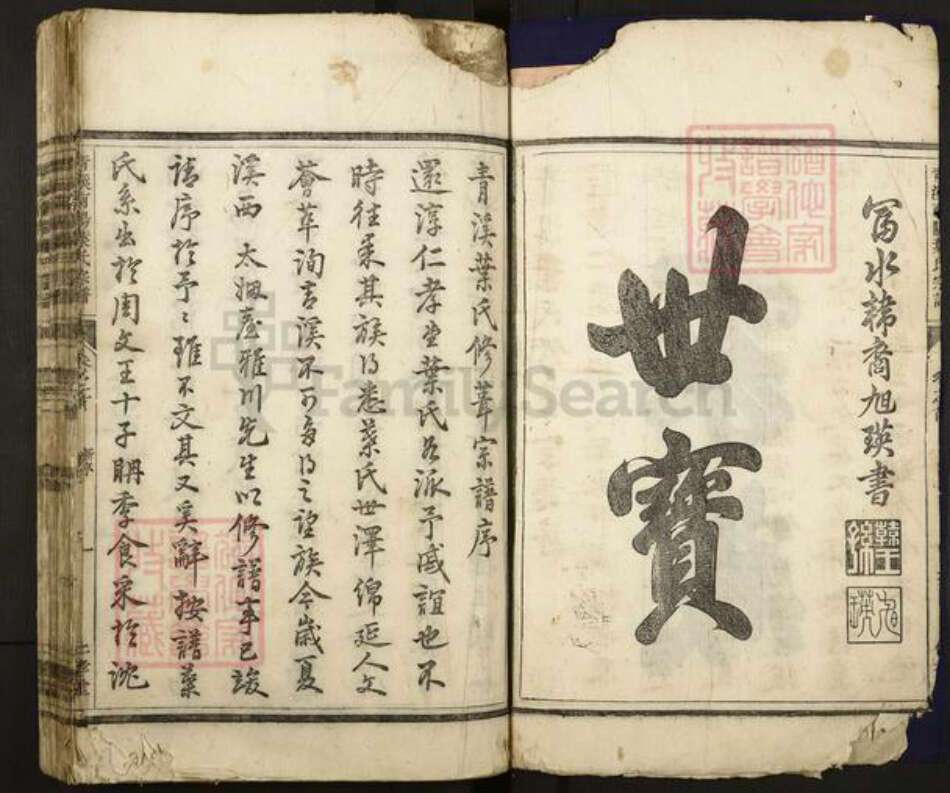 冨水韓裔旭瑛書
世寶
青溪葉氏修葺宗譜序
還淳仁孝坐葉氏名派予戚誼也不
時往來其族得悉葉氏世澤綿延人文
薈萃洵青溪不可多得之望族今歲夏
溪西太姻臺雅川先生以修譜事已竣
請序於予予雖不文其又奚辭按譜葉
氏系出於周文王十子聃季食采於沈
FamilySearch